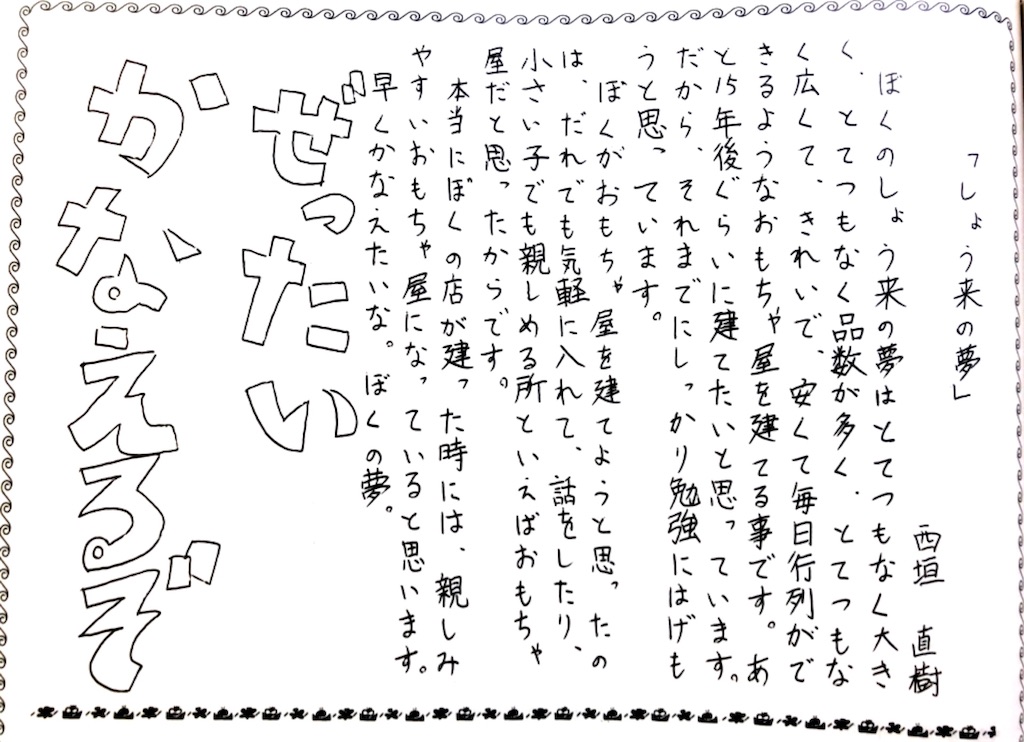 「しょう来の夢」
西垣 直樹
ぼくのしょう来の夢はとてつもなく大き
く、とてつもなく品数が多く、とてつもな
く広くて、きれいで、安くて毎日行列がで
きるようなおもちゃ屋を建てる事です。あ
と15年後ぐらいに建てたいと思っています。
だから、それまでにしっかり勉強にはげも
うと思っています。
ぼくがおもちゃ屋を建てようと思ったの
は、だれでも気軽に入れて、話をしたり、
小さい子でも親しめる所といえばおもちゃ
屋だと思ったからです。
本当にぼくの店が建った時には、親しみ
やすいおもちゃ屋になっていると思います。
早くかなえたいな。ぼくの夢。
ぜったい
かなえるぞ